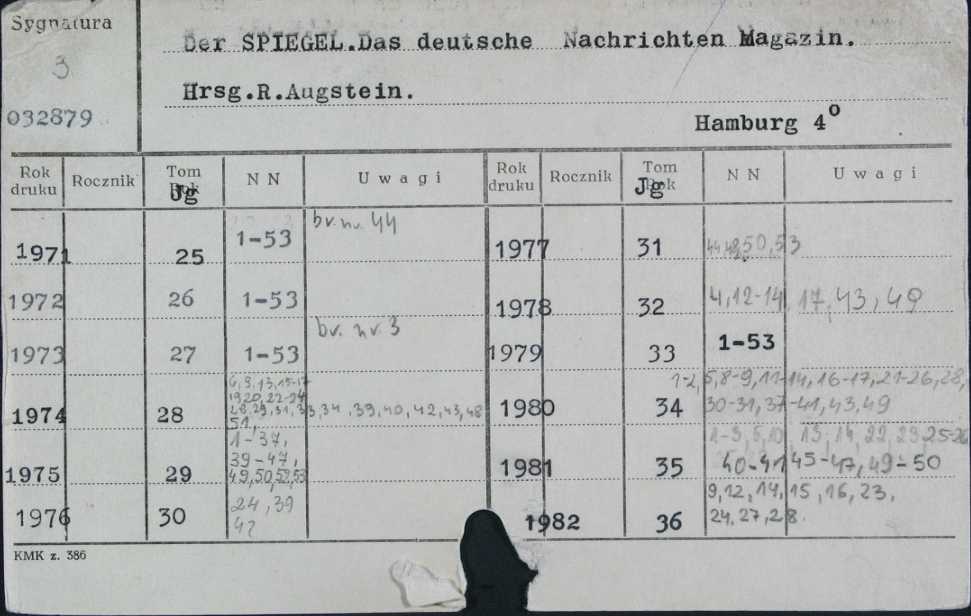 Sygnatura
3
032879
Der SPIEGEL.Das deutsche Nachrichten Magazin.
Hrsg.R.Augstein.
Hamburg 4°
Rok druku Rocznik Tom Jg NN Uwagi Rok druku Rocznik Tom Jg NN Uwagi
1971 25 1-53 br. nr. 44
1972 26 1-53
1973 27 1-53 br. nr. 3
1974 28 6, 9, 13, 15-17
19,20,22-24
28,29,31,33,34,39,40,42,43,48
51,
1975 29 1-37,
39-47,
49,50,52,53
1976 30 24,39
1977 31 44,48,50,53
1978 32 4,12-14,17,43,49
1979 33 1-53
1980 34 1-2,5,8-9,11-14,16-17,21-26,28,
30-31,37-41,43,49
1981 35 1-3,5,10,13,14,22,23,25-26
40-41,45-47,49-50
1982 36 9,12,14,15,16,23,
24,27,28.
KMK z. 386